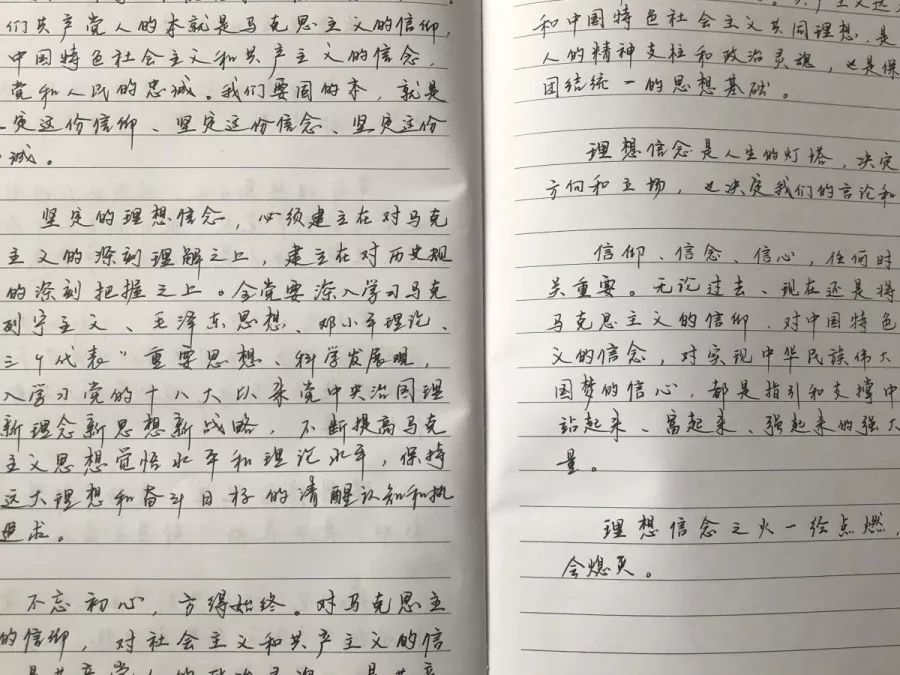 们共产党人的本就是马克思主义的信仰,
中国特色社会主义和共产主义的信念,
党和人民的忠诚。我们要固的本,就是
定这份信仰、坚定这份信念、坚定这份
诚。
坚定的理想信念,必须建立在对马克
主义的深刻理解之上,建立在对历史规
的深刻把握之上。全党要深入学习马克
列宁主义、毛泽东思想、邓小平理论、
三个代表”重要思想、科学发展观,
入学习党的十八大以来党中央治国理
新理念新思想新战略,不断提高马克
主义思想觉悟水平和理论水平,保持
远大理想和奋斗目标的清醒认知和执
追求。
不忘初心,方得始终。对马克思主
的信仰,对社会主义和共产主义的信
是共产党人的政治灵魂,是共产
和中国特色社会主义共同理想,是
人的精神支柱和政治灵魂,也是保
团结统一的思想基础。
理想信念是人生的灯塔,决定
方向和立场,也决定我们的言论和
信仰、信念、信心,任何时
关重要。无论过去、现在还是将
马克思主义的信仰,对中国特色
义的信念,对实现中华民族伟大
国梦的信心,都是指引和支撑中
站起来、富起来、强起来的强大
量。
理想信念之火一经点燃,
会熄灭。